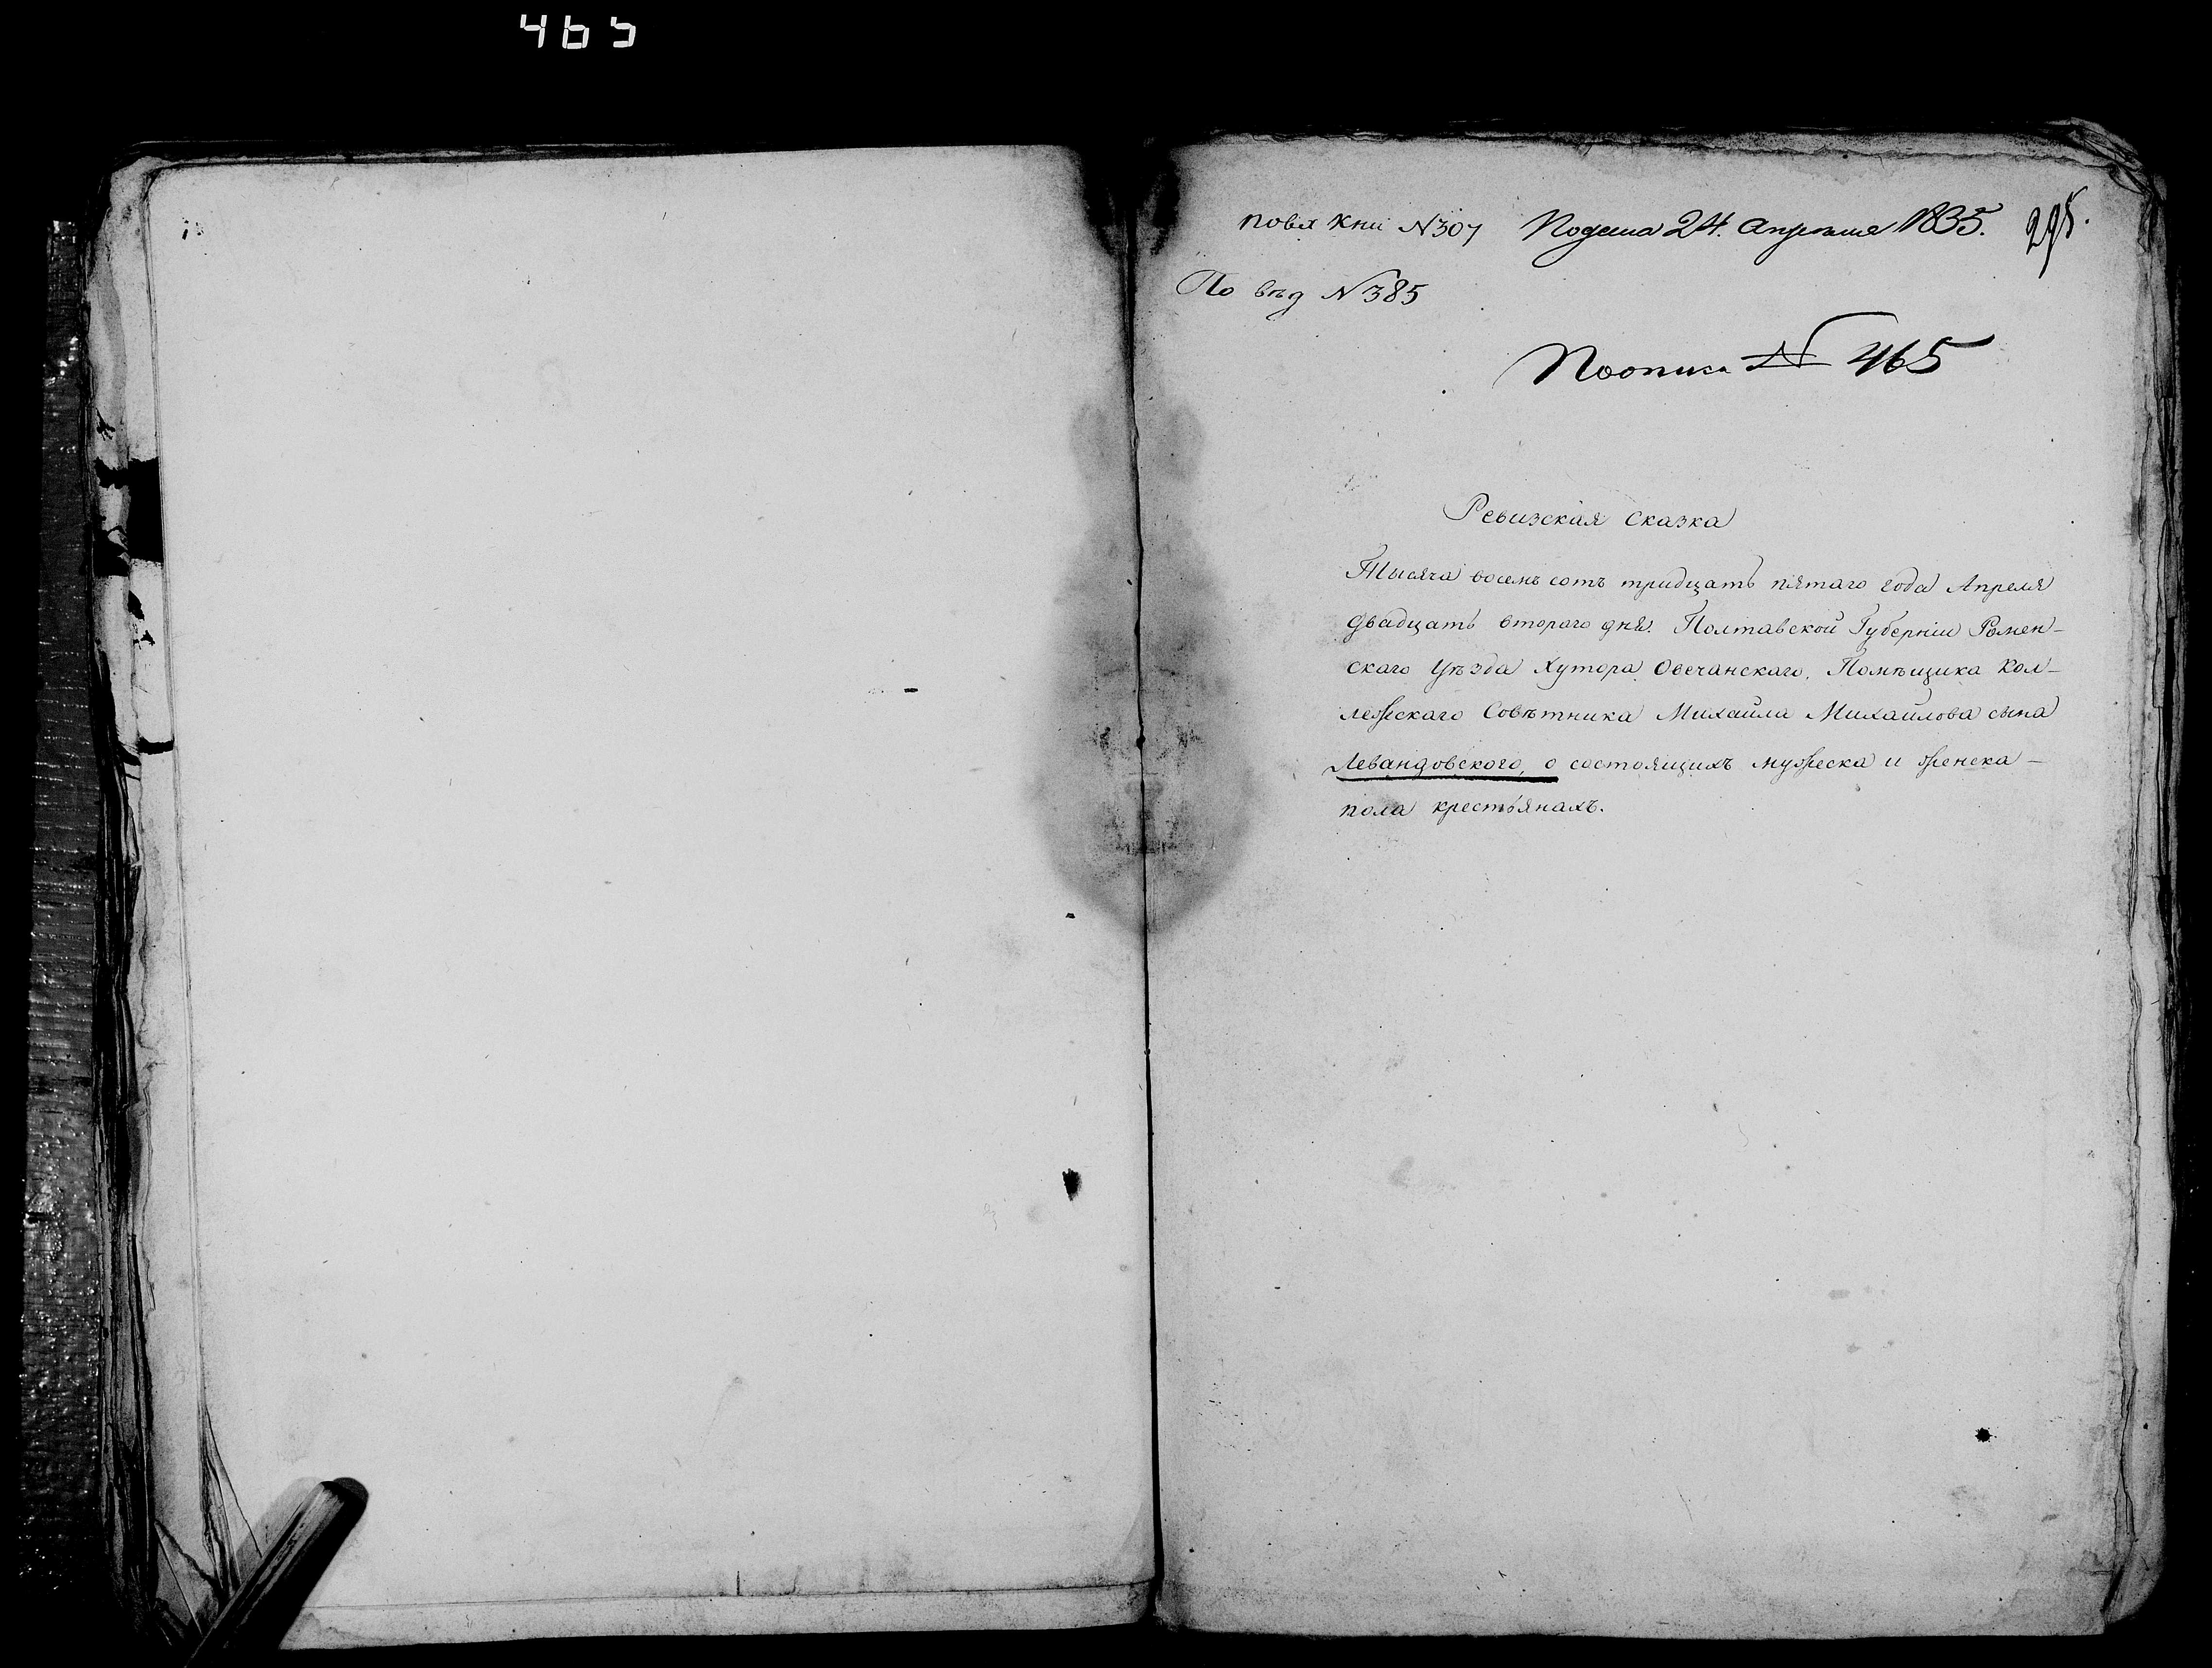 465
повѣ кни N307 Подана 24. апреля 1835. 295.
По вѣд N385
По описи N 465
Ревизская Сказка
Тысяча восемь сотъ тридцать пятаго года Апреля
двадцать втораго дня. Полтавской Губерніи Ромен-
скаго Уѣзда Хутора Овечанскаго, Помѣщика Кол-
лежскаго Совѣтника Михаила Михайлова сына
Левандовского, о состоящихъ мужеска и женска -
пола крестьянахъ.